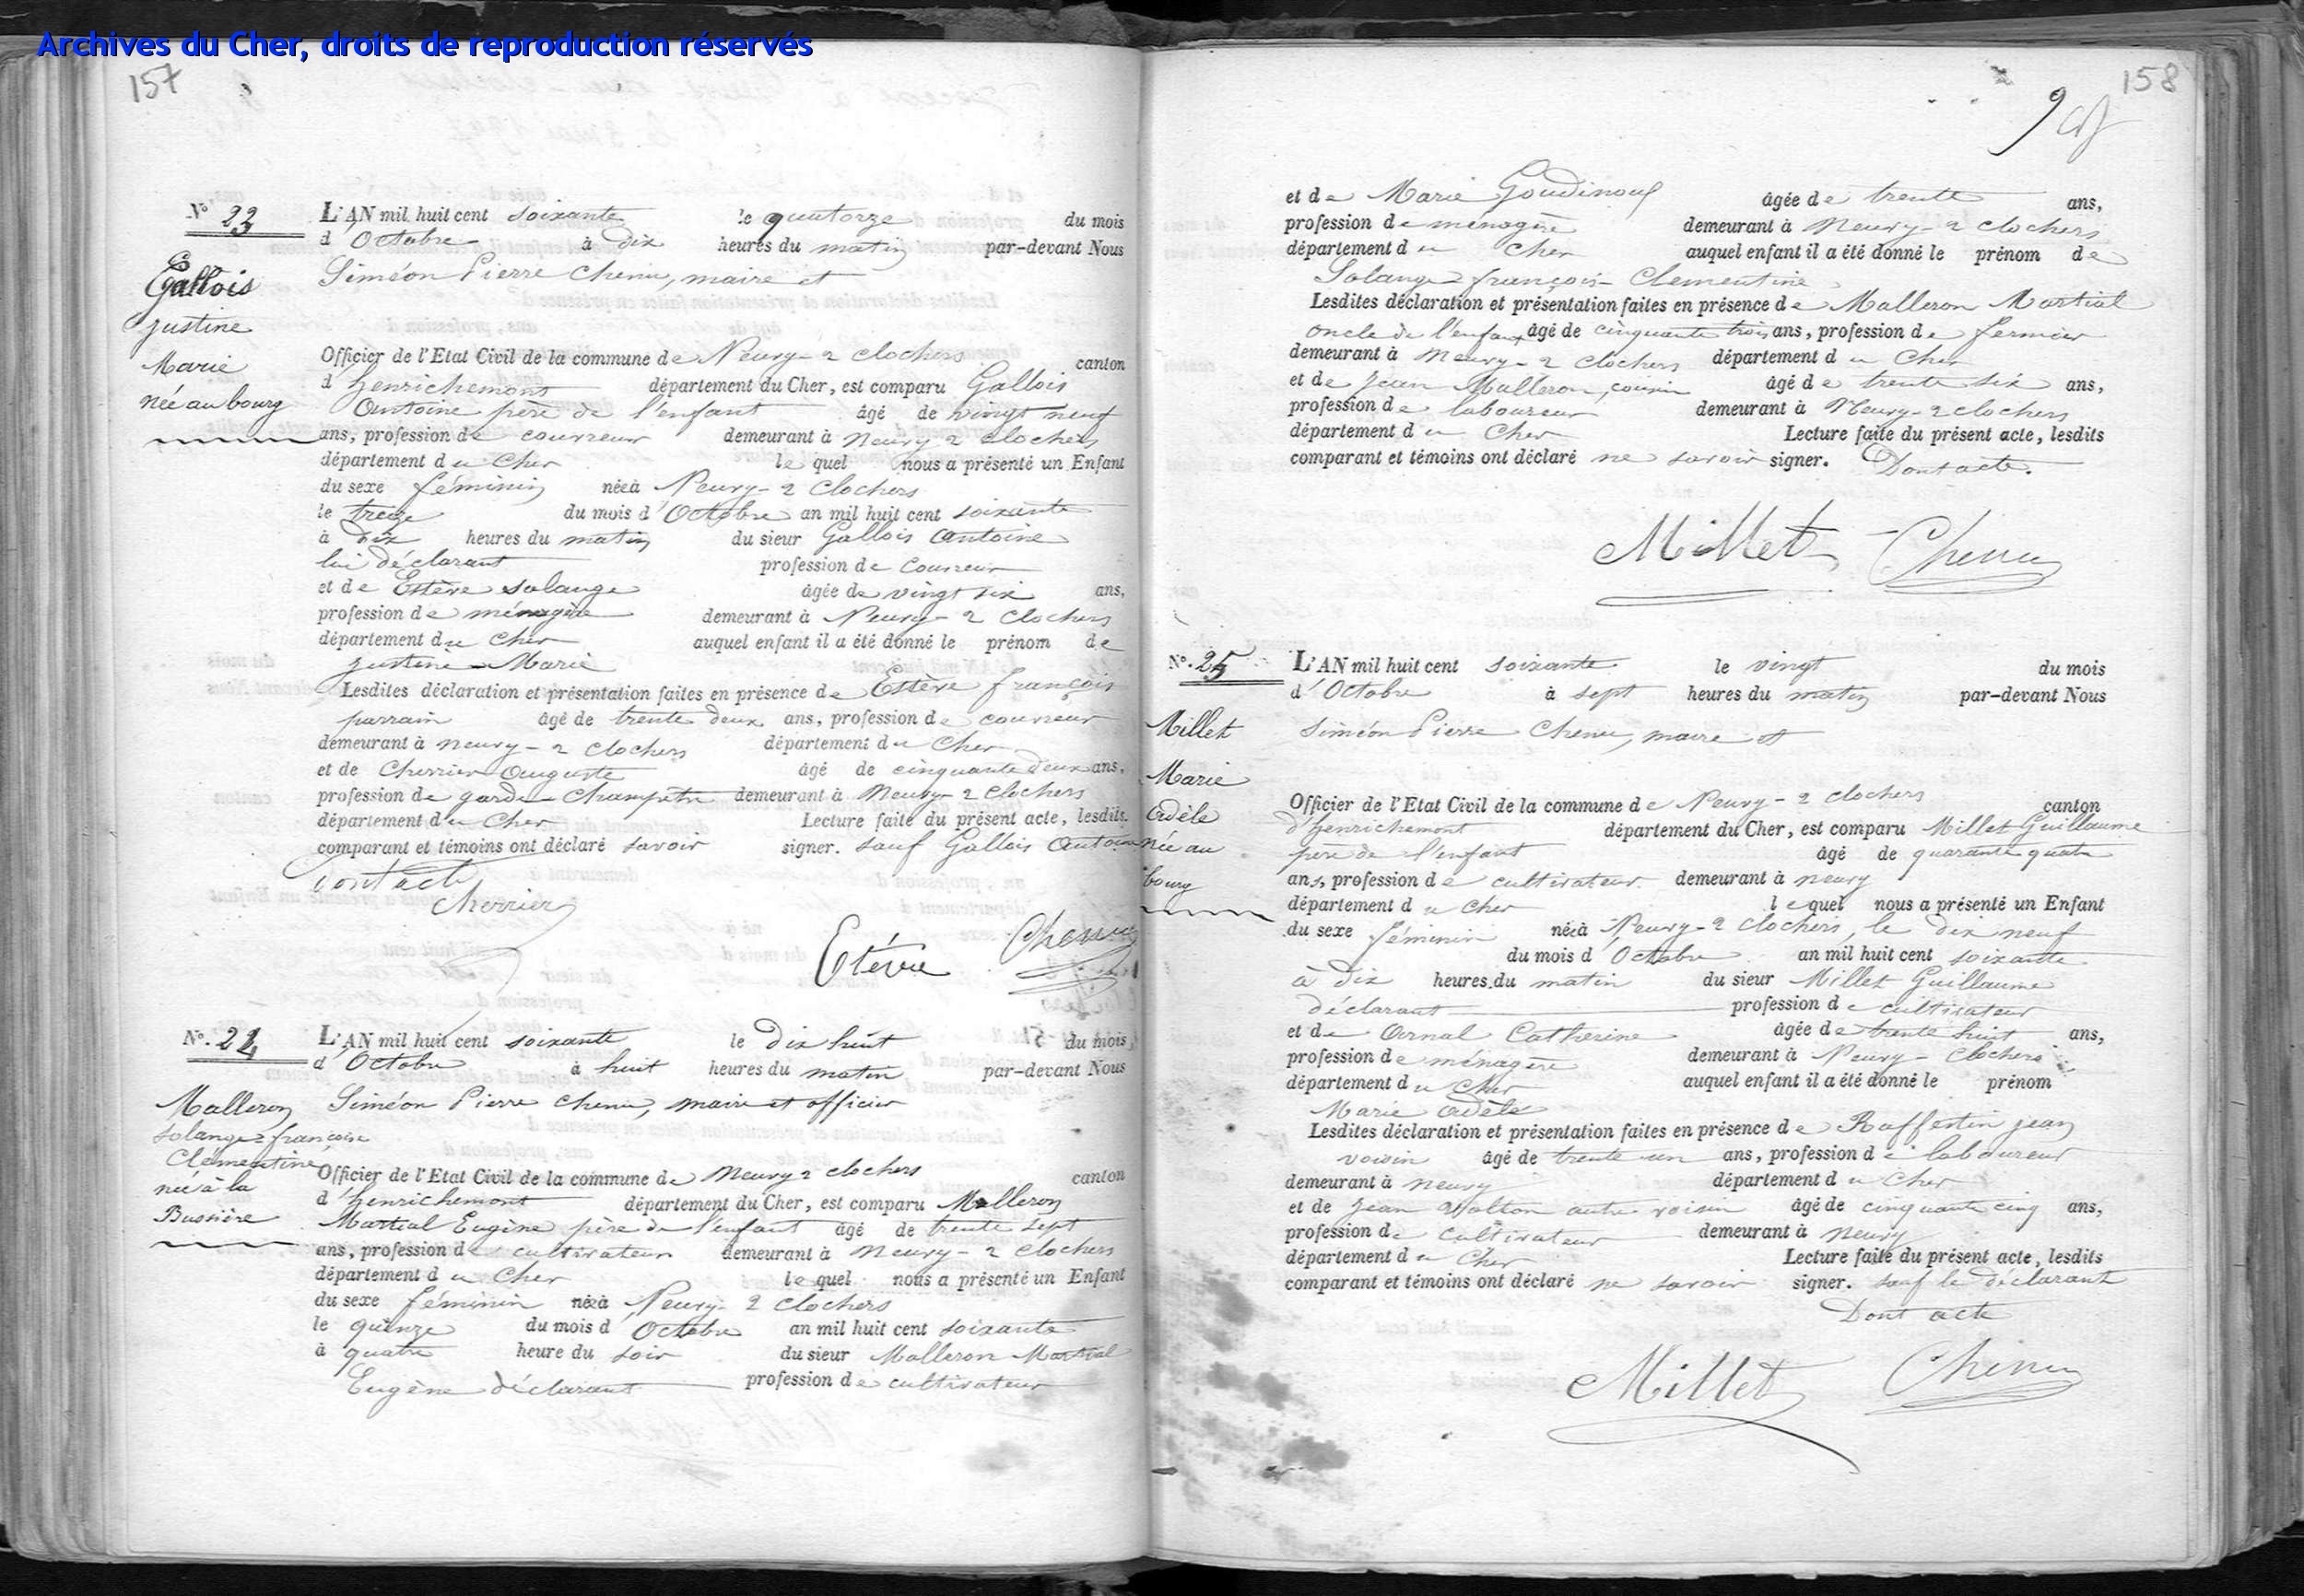 Archives du Cher, droits de reproduction réservés
157
N° 23
Gallois
Justine
Marie
née au bourg
L'AN mil huit cent soixante le quatorze du mois
d'Octobre à dix heures du matin par-devant Nous
Siméon Pierre Chenu, maire et
Officier de l'Etat Civil de la commune de Neuvy-2 clochers canton
d'henrichemont département du Cher, est comparu Gallois
Antoine père de l'enfant âgé de vingt neuf
ans, profession de couvreur demeurant à Neuvy 2 clochers
département du Cher le quel nous a présenté un Enfant
du sexe féminin née à Neuvy-2 Clochers
le treize du mois d'Octobre an mil huit cent soixante
à dix heures du matin du sieur Gallois Antoine
lui déclarant profession de Couvreur
et de Estève Solange âgée de vingt six ans,
profession de ménagère demeurant à Neuvy-2 Clochers
département du Cher auquel enfant il a été donné le prénom de
Justine-Marie
Lesdites déclaration et présentation faites en présence de Estève françois
parrain âgé de trente deux ans, profession de couvreur
demeurant à neuvy-2 clochers département du Cher
et de Cherrier Auguste âgé de cinquante deux ans,
profession de garde-Champêtre demeurant à Neuvy-2 Clochers
département du Cher Lecture faite du présent acte, lesdits
comparant et témoins ont déclaré savoir signer. sauf Gallois Antoine
Dont acte
Cherrier
Etéve Chenu
N° 24
Malleron
Solange-françoise
Clémentine
née à la
Bussière
L'AN mil huit cent soixante le Dix huit du mois
d'Octobre à huit heures du matin par-devant Nous
Siméon Pierre Chenu, maire et officier
Officier de l'Etat Civil de la commune de Neuvy 2 clochers canton
d'henrichemont département du Cher, est comparu Malleron
Martial Eugène père de l'enfant âgé de trente sept
ans, profession de cultivateur demeurant à Neuvy-2 Clochers
département du Cher le quel nous a présenté un Enfant
du sexe féminin née à Neuvy-2 Clochers
le quinze du mois d'Octobre an mil huit cent soixante
à quatre heure du soir du sieur Malleron Martial
Eugène déclarant profession de cultivateur
158
et de Marie âgée de trente ans,
profession de ménagère demeurant à Neuvy-2 clochers
département du Cher auquel enfant il a été donné le prénom de
Solange françois-Clementine
Lesdites déclaration et présentation faites en présence de Malleron Martial
oncle de l'enfant âgé de cinquante trois ans, profession de fermier
demeurant à Neuvy-2 clochers département du Cher
et de Jean Malleron, cousin âgé de trente six ans,
profession de laboureur demeurant à Neuvy-2 clochers
département du Cher Lecture faite du présent acte, lesdits
comparant et témoins ont déclaré ne savoir signer. Dont acte.
Millet Chenu
N° 25
Millet
Marie
Adèle
née au
bourg
L'AN mil huit cent soixante le vingt du mois
d'Octobre à sept heures du matin par-devant Nous
Siméon Pierre Chenu, maire et
Officier de l'Etat Civil de la commune de Neuvy-2 clochers canton
d'henrichemont département du Cher, est comparu Millet Guillaume
père de l'enfant âgé de quarante quatre
ans, profession de cultivateur demeurant à neuvy
département du Cher le quel nous a présenté un Enfant
du sexe féminin née à Neuvy-2 clochers, le dix neuf
du mois d'Octobre an mil huit cent soixante
à dix heures du matin du sieur Millet Guillaume
déclarant profession de cultivateur
et de Catherine âgée de trente huit ans,
profession de ménagère demeurant à Neuvy-Clochers
département du Cher auquel enfant il a été donné le prénom
Marie Adèle
Lesdites déclaration et présentation faites en présence de Raffestin jean
voisin âgé de trente un ans, profession de laboureur
demeurant à neuvy département du Cher
et de Jean autre voisin âgé de cinquante cinq ans,
profession de Cultivateur demeurant à neuvy
département du Cher Lecture faite du présent acte, lesdits
comparant et témoins ont déclaré ne savoir signer. sauf le déclarant
Dont acte
Millet Chenu